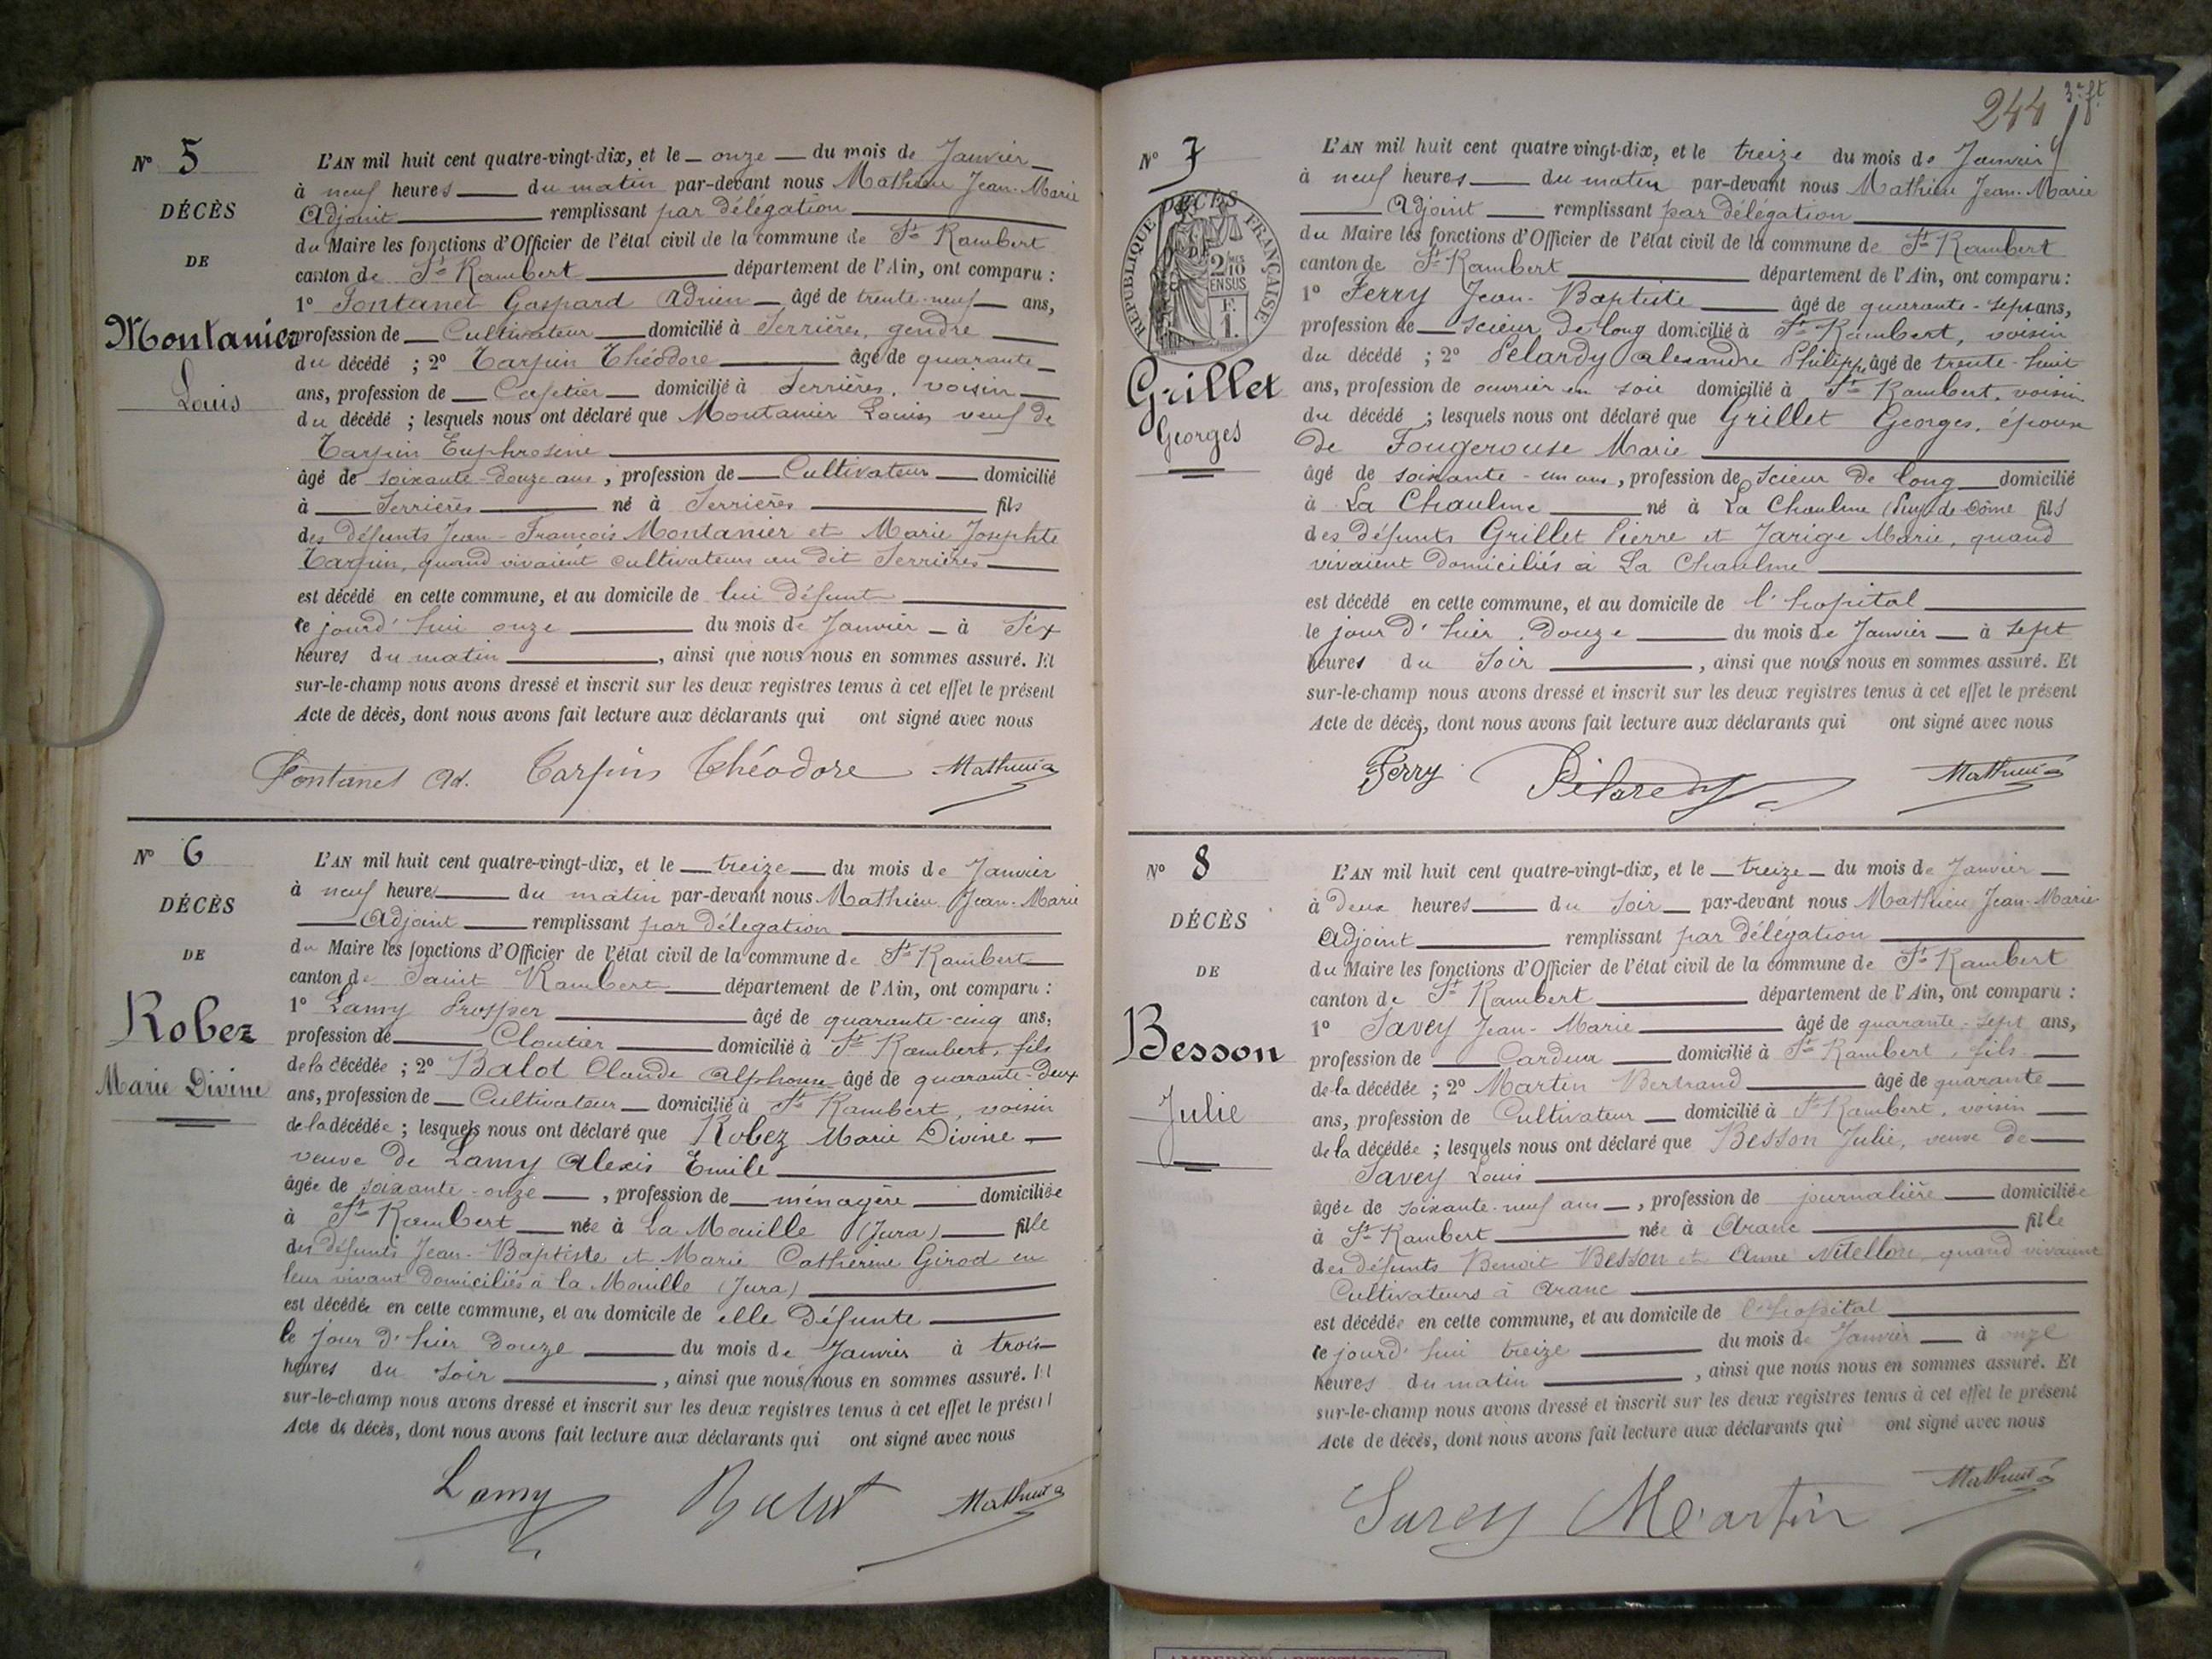 N° 5
DÉCÈS
DE
Montanier
Louis
L'AN mil huit cent quatre-vingt-dix, et le onze du mois de Janvier
à neuf heures du matin par-devant nous Mathieu Jean-Marie
Adjoint remplissant par délégation
du Maire les fonctions d'Officier de l'état civil de la commune de St Rambert
canton de St Rambert département de l'Ain, ont comparu :
1° Fontanel Gaspard Adrien âgé de trente-neuf ans,
profession de Cultivateur domicilié à Serrières, gendre
du décédé ; 2° Tarpin Théodore âgé de quarante
ans, profession de Cafetier domicilié à Serrières, voisin
du décédé ; lesquels nous ont déclaré que Montanier Louis veuf de
Tarpin Euphrosine
âgé de soixante-douze ans, profession de Cultivateur domicilié
à Serrières né à Serrières fils
des défunts Jean-François Montanier et Marie Josephte
Tarpin, quand vivaient cultivateurs au dit Serrières
est décédé en cette commune, et au domicile de lui défunt
ce jourd'hui onze du mois de Janvier à Six
heures du matin, ainsi que nous nous en sommes assuré. Et
sur-le-champ nous avons dressé et inscrit sur les deux registres tenus à cet effet le présent
Acte de décès, dont nous avons fait lecture aux déclarants qui ont signé avec nous
Fontanel Ad. Tarpin Théodore Mathieu
N° 6
DÉCÈS
DE
Robez
Marie Divine
L'AN mil huit cent quatre-vingt-dix, et le treize du mois de Janvier
à neuf heures du matin par-devant nous Mathieu Jean-Marie
Adjoint remplissant par délégation
du Maire les fonctions d'Officier de l'état civil de la commune de St Rambert
canton de Saint Rambert département de l'Ain, ont comparu :
1° Lamy Prosper âgé de quarante-cinq ans,
profession de Cloutier domicilié à St Rambert, fils
de la décédée ; 2° Balot Claude Alphonse âgé de quarante-deux
ans, profession de Cultivateur domicilié à St Rambert, voisin
de la décédée ; lesquels nous ont déclaré que Robez Marie Divine
veuve de Lamy Alexis Emile
âgée de soixante-onze, profession de ménagère domiciliée
à St Rambert née à La Mouille (Jura) fille
des défunts Jean-Baptiste et Marie Catherine Girod en
leur vivant domiciliés à la Mouille (Jura)
est décédée en cette commune, et au domicile de elle défunte
le jour d'hier douze du mois de Janvier à trois
heures du soir, ainsi que nous nous en sommes assuré. Et
sur-le-champ nous avons dressé et inscrit sur les deux registres tenus à cet effet le présent
Acte de décès, dont nous avons fait lecture aux déclarants qui ont signé avec nous
Lamy Balot Mathieu
244 3e ft
N° 7
DÉCÈS
DE
RÉPUBLIQUE FRANÇAISE
2/10 EN SUS
F. 1.
Grillet
Georges
L'AN mil huit cent quatre vingt-dix, et le treize du mois de Janvier
à neuf heures du matin par-devant nous Mathieu Jean-Marie
Adjoint remplissant par délégation
du Maire les fonctions d'Officier de l'état civil de la commune de St Rambert
canton de St Rambert département de l'Ain, ont comparu :
1° Ferry Jean-Baptiste âgé de quarante-sept ans,
profession de scieur de long domicilié à St Rambert, voisin
du décédé ; 2° Pelardy Alexandre Philippe âgé de trente-huit
ans, profession de ouvrier en soie domicilié à St Rambert, voisin
du décédé ; lesquels nous ont déclaré que Grillet Georges, époux
de Fougerouse Marie
âgé de soixante-un ans, profession de scieur de long domicilié
à La Chaulme né à La Chaulme (Puy de Dôme fils
des défunts Grillet Pierre et Jarige Marie, quand
vivaient domiciliés à La Chaulme
est décédé en cette commune, et au domicile de l'hopital
le jour d'hier douze du mois de Janvier à sept
heures du soir, ainsi que nous nous en sommes assuré. Et
sur-le-champ nous avons dressé et inscrit sur les deux registres tenus à cet effet le présent
Acte de décès, dont nous avons fait lecture aux déclarants qui ont signé avec nous
Ferry Pelardy Mathieu
N° 8
DÉCÈS
DE
Besson
Julie
L'AN mil huit cent quatre-vingt-dix, et le treize du mois de Janvier
à deux heures du soir par-devant nous Mathieu Jean-Marie
Adjoint remplissant par délégation
du Maire les fonctions d'Officier de l'état civil de la commune de St Rambert
canton de St Rambert département de l'Ain, ont comparu :
1° Savey Jean-Marie âgé de quarante-sept ans,
profession de Cardeur domicilié à St Rambert, fils
de la décédée ; 2° Martin Bertrand âgé de quarante
ans, profession de Cultivateur domicilié à St Rambert, voisin
de la décédée ; lesquels nous ont déclaré que Besson Julie, veuve de
Savey Louis
âgée de soixante-neuf ans, profession de journalière domiciliée
à St Rambert née à Aranc fille
des défunts Benoit Besson et Anne Nitellon, quand vivaient
Cultivateurs à Aranc
est décédée en cette commune, et au domicile de l'hopital
ce jourd'hui treize du mois de Janvier à onze
heures du matin, ainsi que nous nous en sommes assuré. Et
sur-le-champ nous avons dressé et inscrit sur les deux registres tenus à cet effet le présent
Acte de décès, dont nous avons fait lecture aux déclarants qui ont signé avec nous
Savey Martin Mathieu